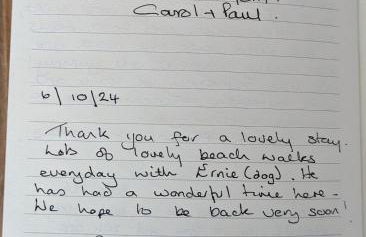 Carol + Paul.
6/10/24
Thank you for a lovely stay.
Lots of lovely beach walks
everyday with Ernie (dog). He
has had a wonderful time here -
We hope to be back very soon!